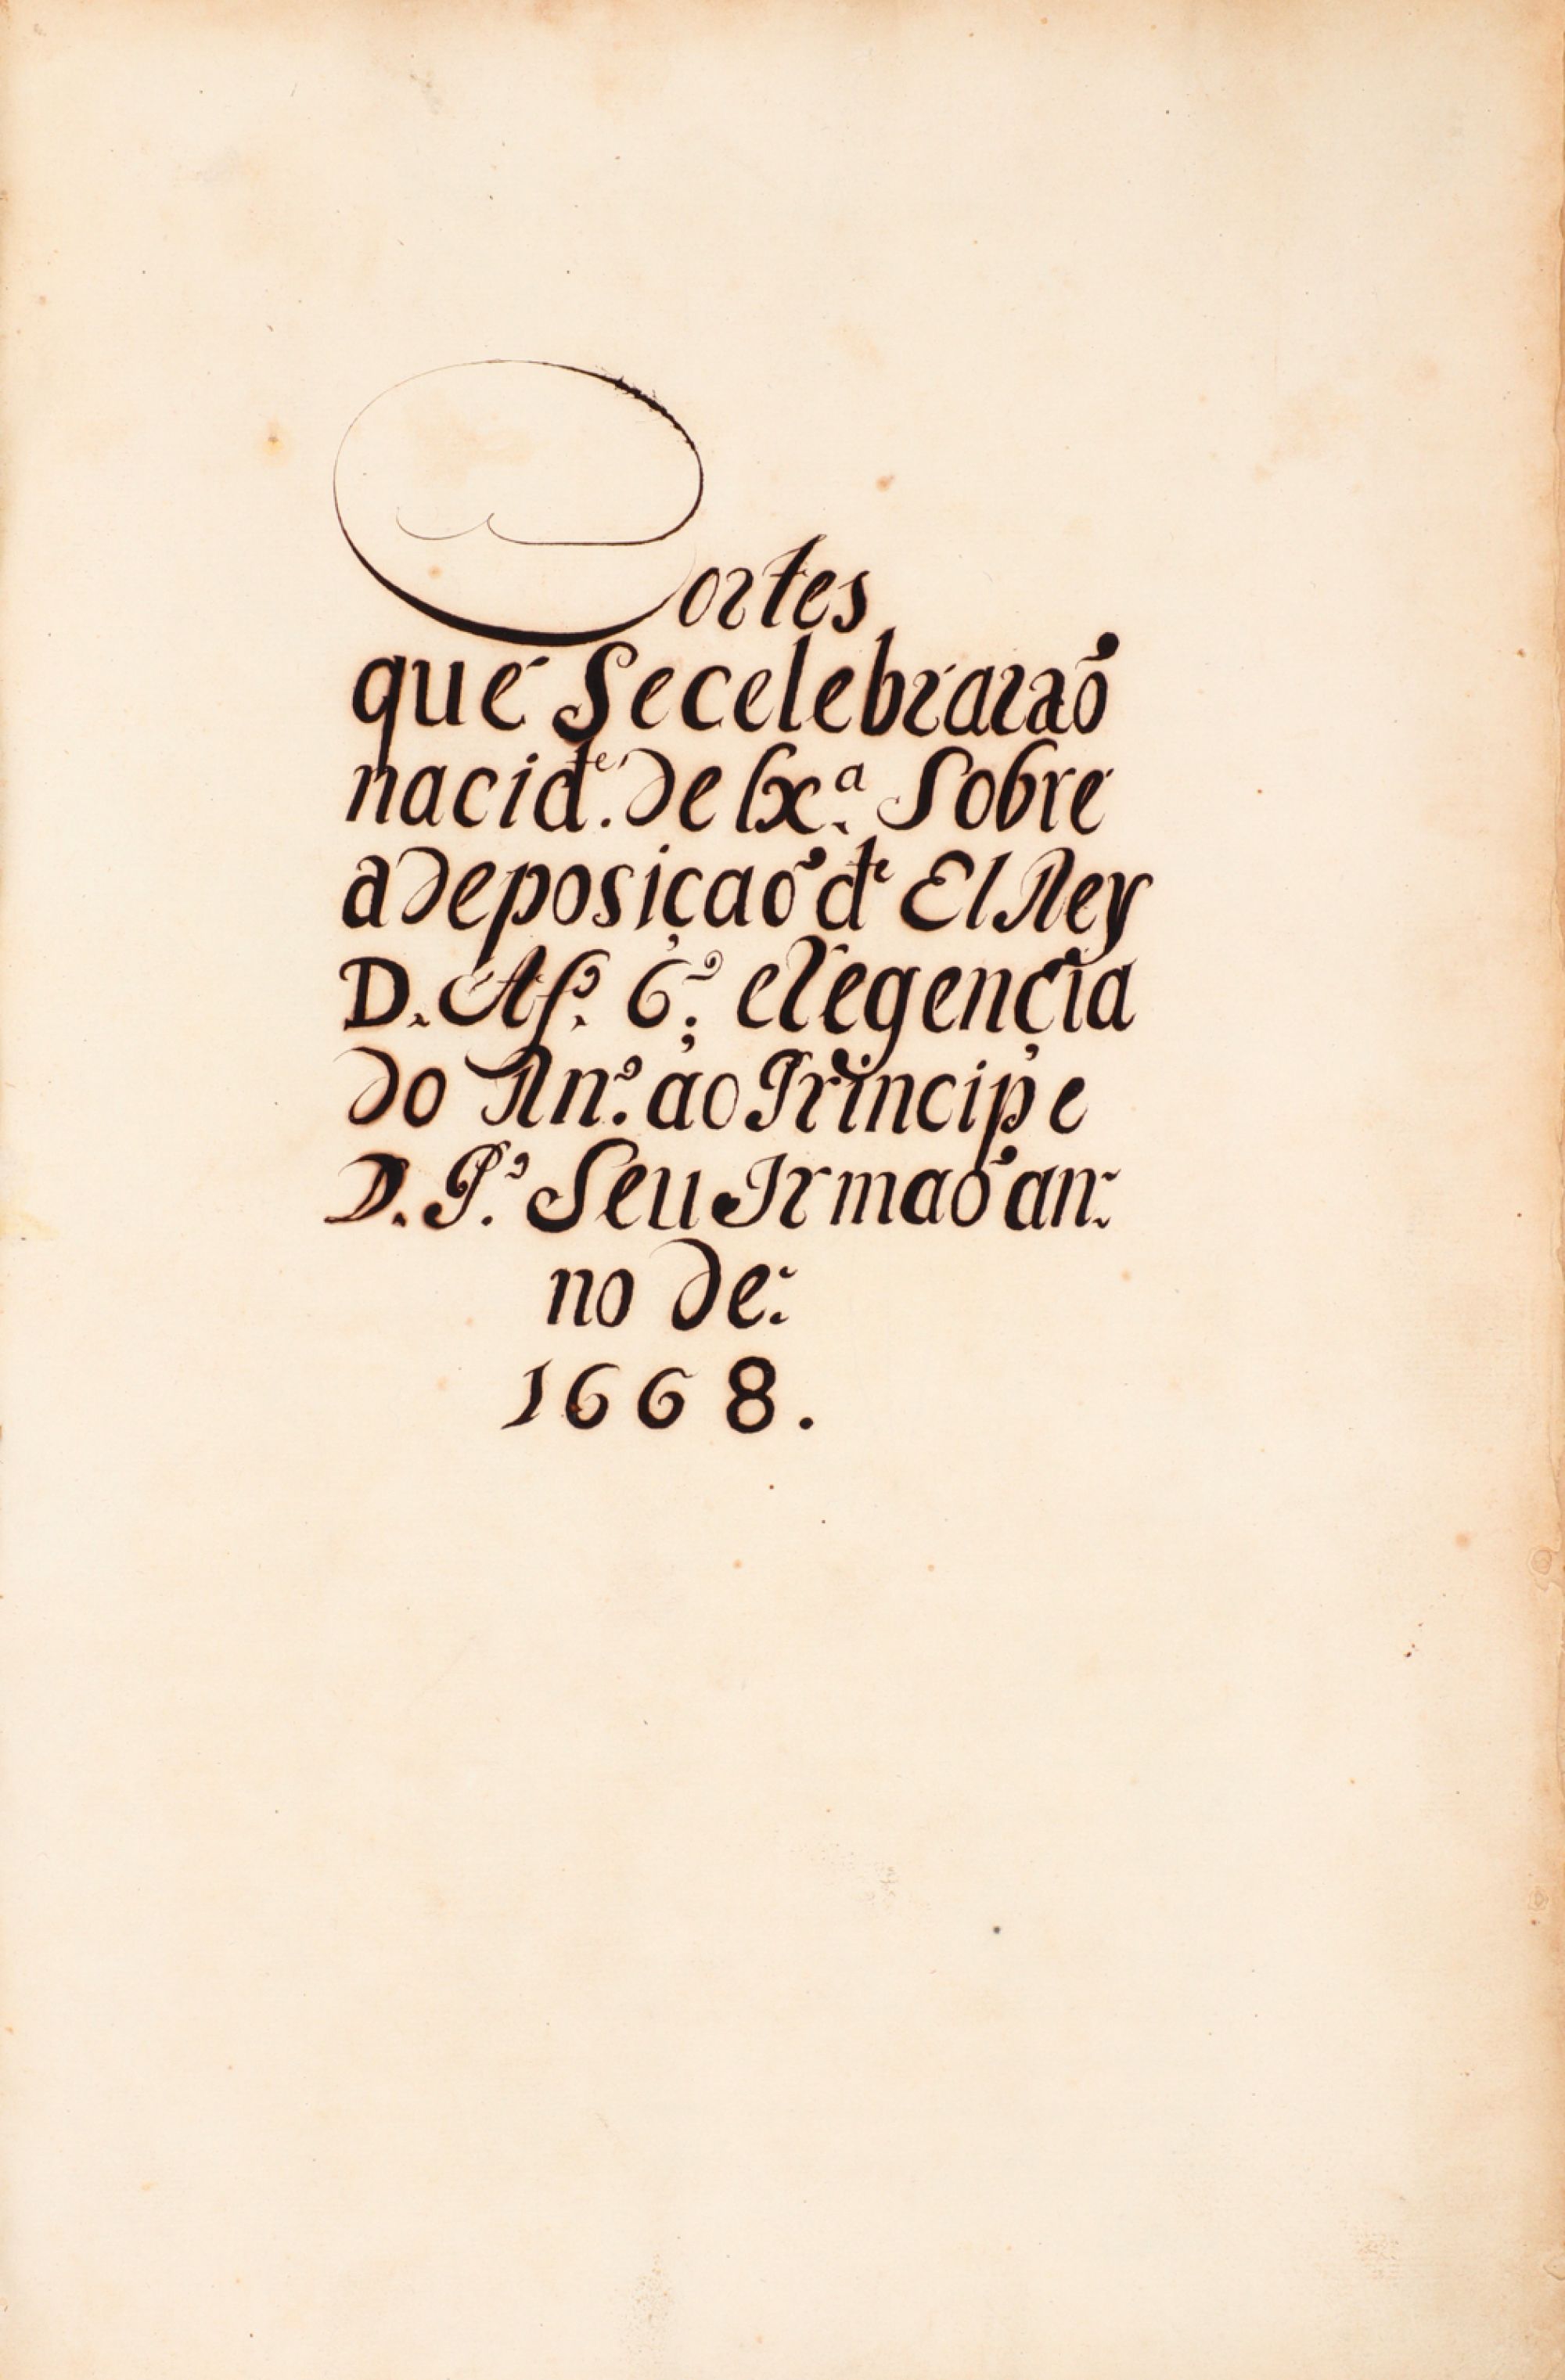 Cortes
que Secelebraraõ
nacid.e de Lx.a Sobre
adeposiçaõ de El Rey
D. Af.o 6.o eregencia
do Rn.o ao Principe
D. P.o Seu Irmaõ an:
no de:
1668.